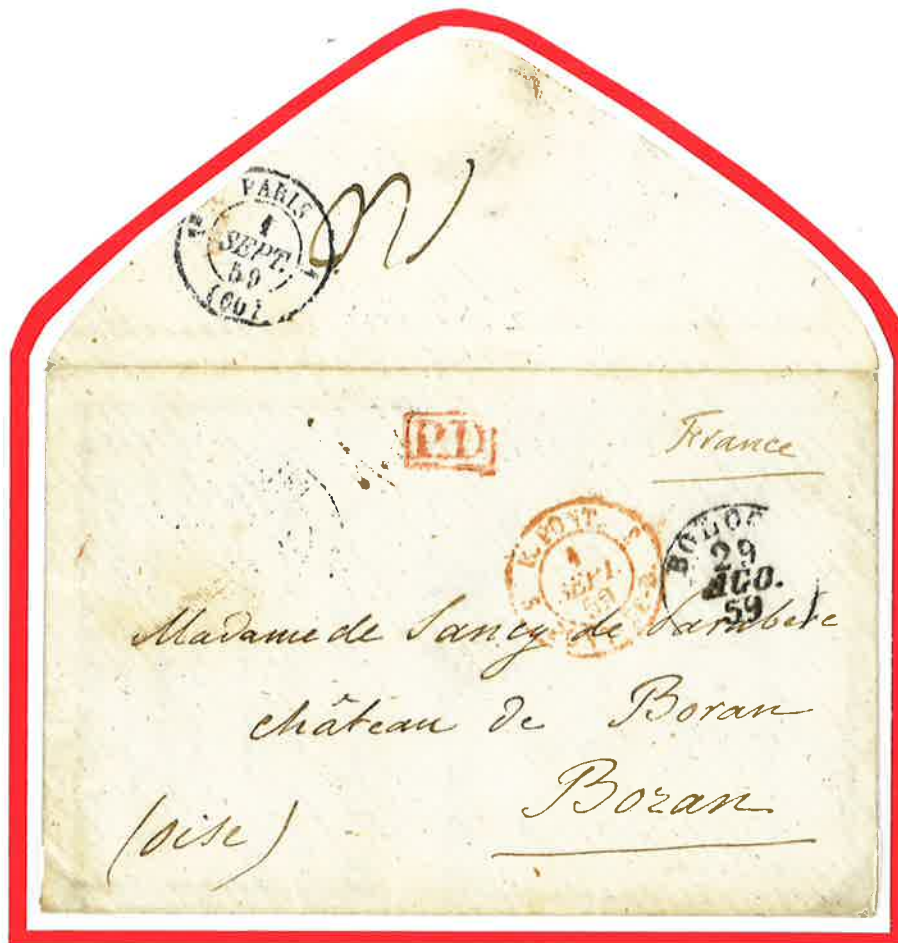 PARIS
1
SEPT.
59
(60)
P.D
France
E. PONT.
1
SEPT.
59
BOLOG
29
AGO.
59
Madame de Sancy de
château de Boran
Boran
(Oise)